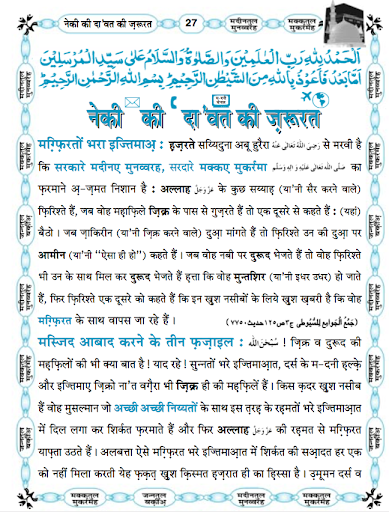 नेकी की दा'वत की ज़रूरत
27
मदीनतुल मुनव्वरह
मक्कतुल मुकर्रमह
اَلْحَمْدُ لِلّٰهِ رَبِّ الْعٰلَمِيْنَ وَالصَّلٰوةُ وَالسَّلَامُ عَلٰى سَيِّدِ الْمُرْسَلِيْنَ
اَمَّا بَعْدُ فَاَعُوْذُ بِاللّٰهِ مِنَ الشَّيْطٰنِ الرَّجِيْمِ ؕ بِسْمِ اللّٰهِ الرَّحْمٰنِ الرَّحِيْمِ ؕ
नेकी की दा'वत की ज़रूरत
मग़्फ़िरतों भरा इज्तिमाअ़ : हज़रते सय्यिदुना अबू हुरैरा رَضِیَ اللّٰهُ تَعَالٰی عَنْهُ से मरवी है
कि सरकारे मदीनए मुनव्वरह, सरदारे मक्कए मुकर्रमा صَلَّى اللّٰهُ تَعَالٰى عَلَيْهِ وَاٰلِهٖ وَسَلَّم का
फ़रमाने अ़-ज़मत निशान है : अल्लाह عَزَّوَجَلَّ के कुछ सय्याह़ (या'नी सैर करने वाले)
फ़िरिश्ते हैं, जब वोह मह़ाफ़िले ज़िक्र के पास से गुज़रते हैं तो एक दूसरे से कहते हैं : (यहां)
बैठो । जब ज़ाकिरीन (या'नी ज़िक्र करने वाले) दुआ़ मांगते हैं तो फ़िरिश्ते उन की दुआ़ पर
आमीन (या'नी "ऐसा ही हो") कहते हैं । जब वोह नबी पर दुरूद भेजते हैं तो वोह फ़िरिश्ते
भी उन के साथ मिल कर दुरूद भेजते हैं ह़त्ता कि वोह मुन्तशिर (या'नी इधर उधर) हो जाते
हैं, फिर फ़िरिश्ते एक दूसरे को कहते हैं कि इन ख़ुश नसीबों के लिये ख़ुश ख़बरी है कि वोह
मग़्फ़िरत के साथ वापस जा रहे हैं । (جَمْعُ الْجَوامِع لِلسُّيُوطی ج٣ص١٢٥حدیث٧٧٥٠)
मस्जिद आबाद करने के तीन फ़ज़ाइल : سُبْحٰنَ اللّٰه ! ज़िक्र व दुरूद की
मह़फ़िलों की भी क्या बात है ! याद रहे ! सुन्नतों भरे इज्तिमाआ़त, दर्स के म-दनी ह़ल्के़
और इज्तिमाए ज़िक्रो ना'त वग़ैरा भी ज़िक्र ही की मह़फ़िलें हैं । किस क़दर ख़ुश नसीब
हैं वोह मुसल्मान जो अच्छी अच्छी निय्यतों के साथ इस त़रह़ के रह़मतों भरे इज्तिमाआ़त
में दिल लगा कर शिर्कत फ़रमाते हैं और फिर अल्लाह عَزَّوَجَلَّ की रह़मत से मग़्फ़िरत
याफ़्ता उठते हैं । अलबत्ता ऐसे मग़्फ़िरत भरे इज्तिमाआ़त में शिर्कत की सआ़दत हर एक
को नहीं मिला करती येह फ़क़त़ ख़ुश क़िस्मत ह़ज़रात ही का ह़िस्सा है । उ़मूमन दर्स व
मक्कतुल मुकर्रमह
जन्नतुल बक़ीअ़
मदीनतुल मुनव्वरह